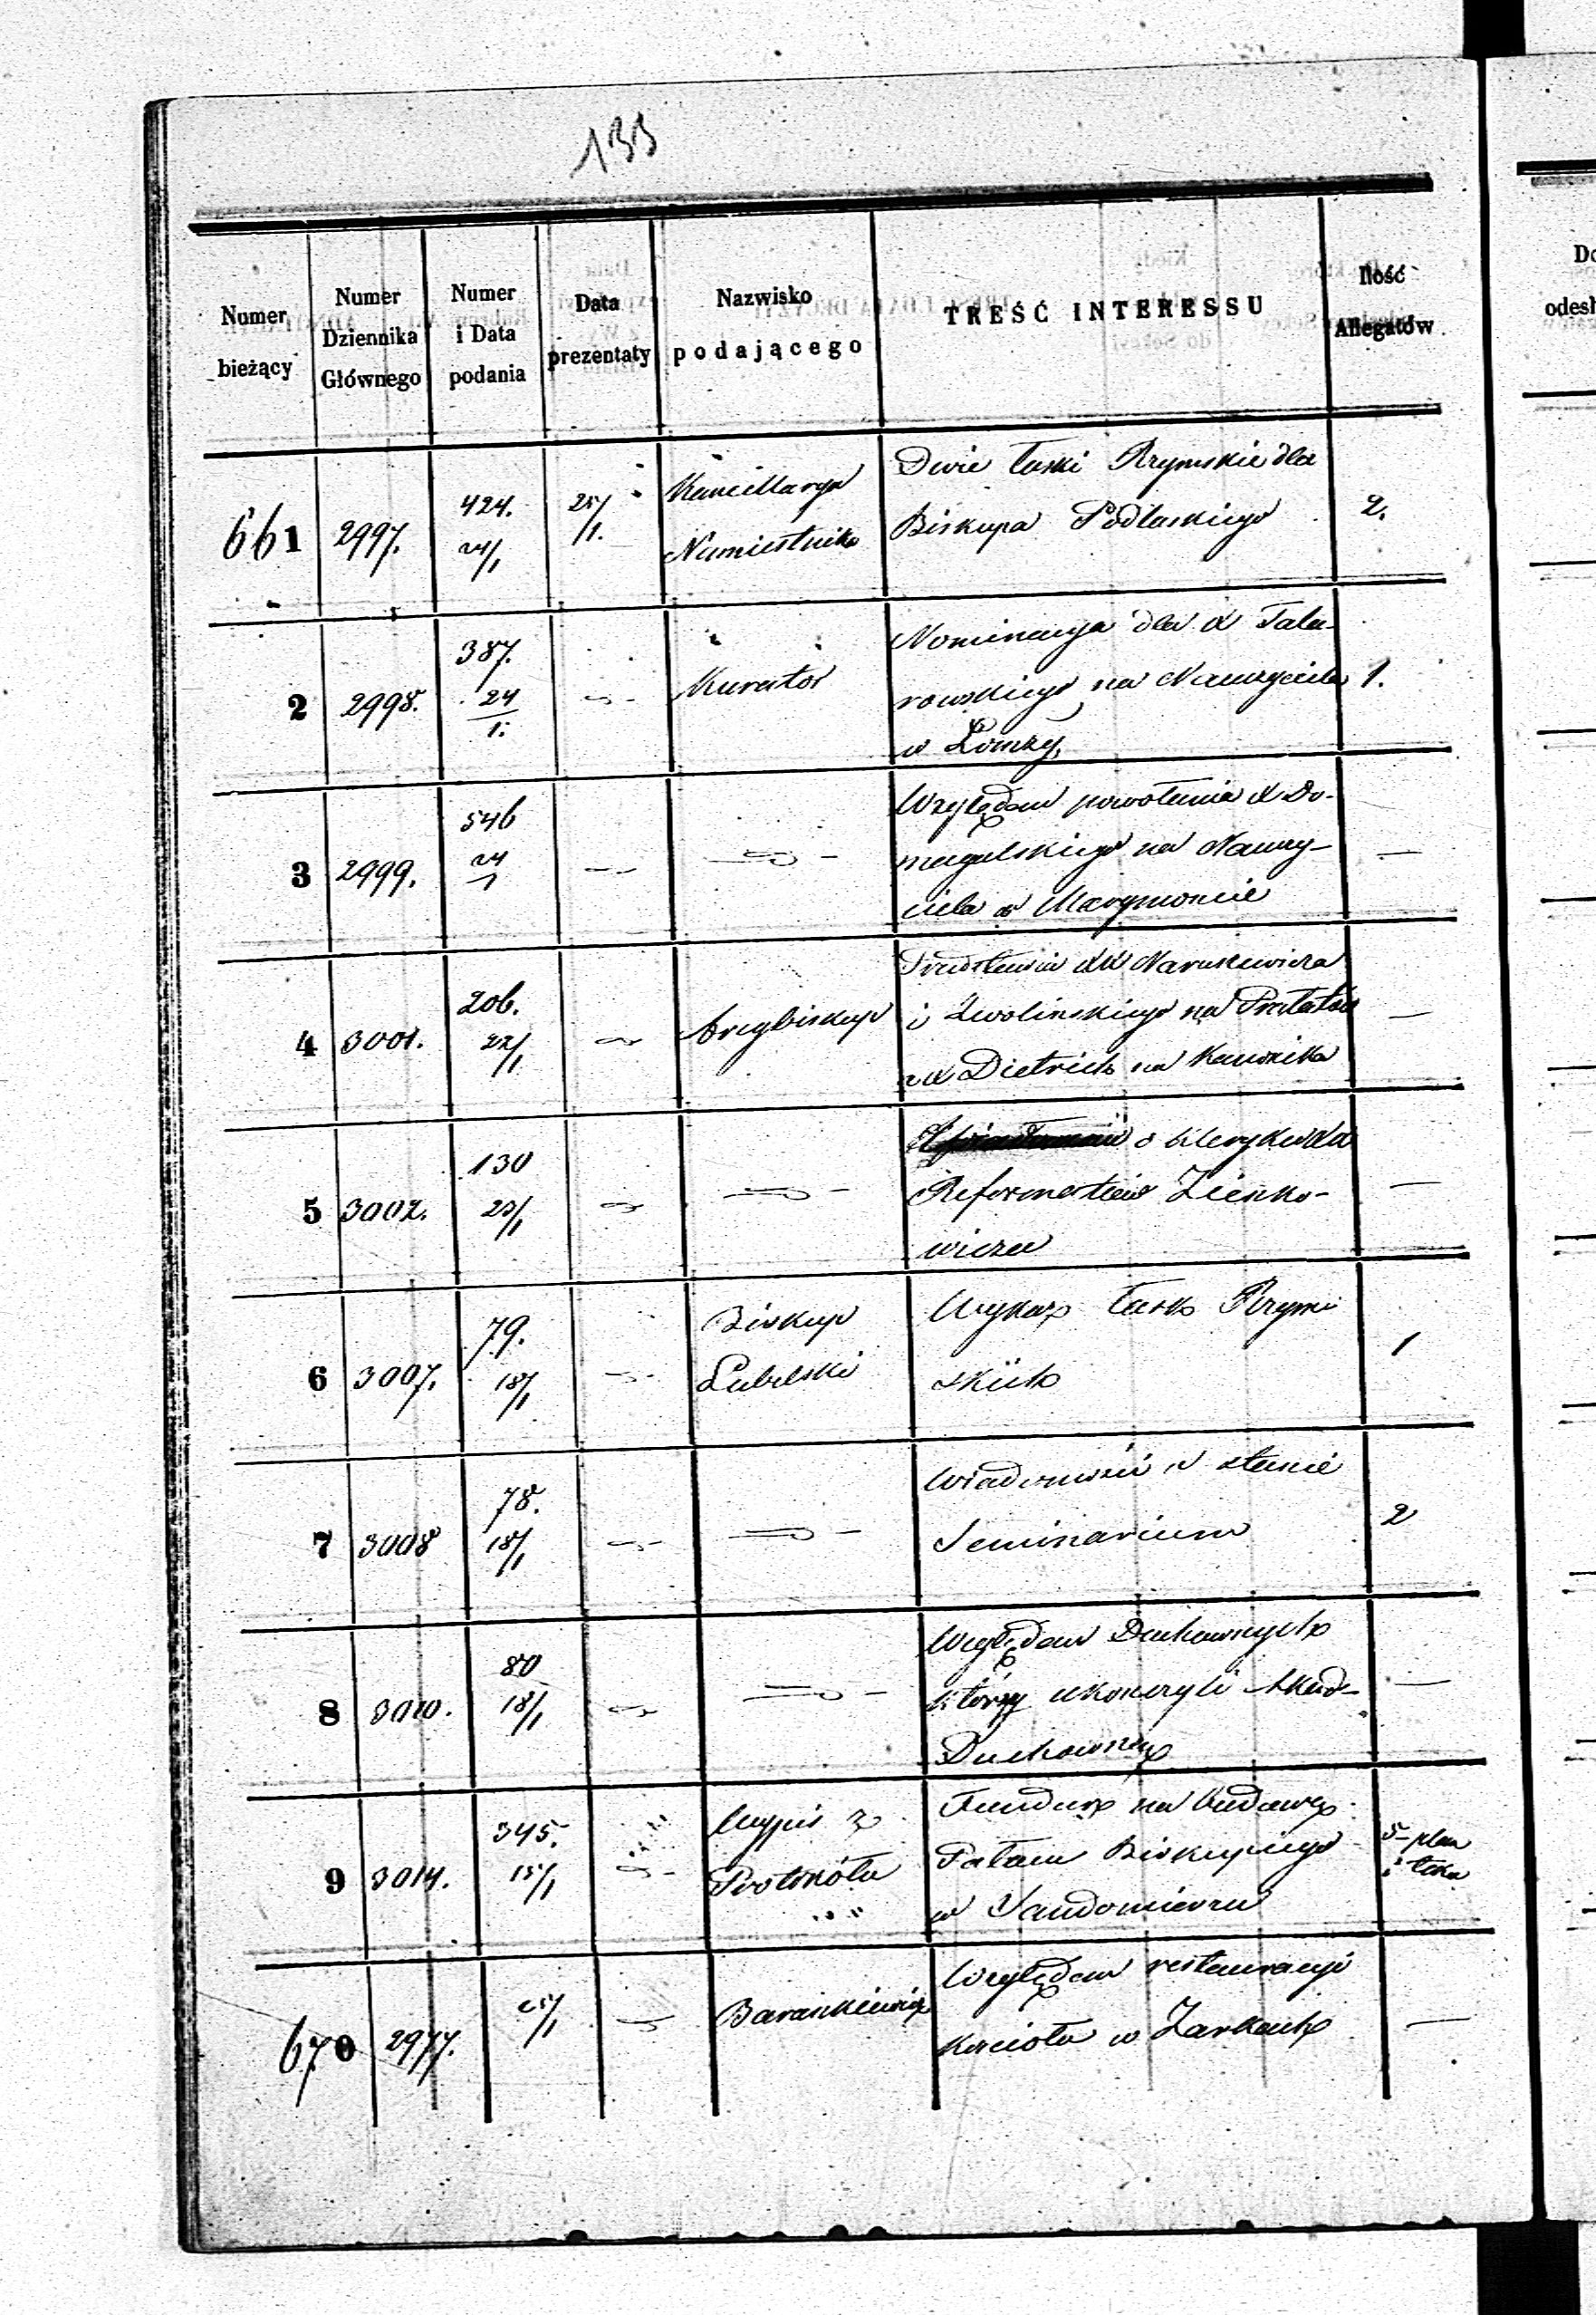 133
Numer bieżący
Numer Dziennika Głównego
Numer i Data podania
Data prezentaty
Nazwisko podającego
TREŚĆ INTERESSU
Ilość Allegatów
661 2997. 424. 24/1 25/1. Kancellarya Namiestnika
Dwie łaski Rzymskie dla
Biskupa Podlaskiego 2.
2 2998. 387. 24/1. Kurator
Nominacya dla X Tala-
rowskiego na Nauczyciela 1.
w Łomży,
3 2999. 546 24/1
Względem powołania X Do-
magalskiego na Nauczy- —
ciela w Marymoncie
4 3001. 206. 22/1 Arcybiskup
Przedstawia XX Naruszewicza
i Zwolinskiego na Prałatów —
a X Dietrich na Kanonika
5 3002. 130 23/1
o kleryku XX
Reformatów Zienko- —
wicza
6 3007. 79. 18/1 Biskup Lubelski
Wykaz łask Rzym-
skich 1
7 3008 78. 18/1
Wiadomość o stanie
Seminarium 2
8 3010. 80 18/1
Względem Duchownych
którzy ukonczyli Akad- —
Duchowną
9 3014. 345. 15/1 Wypis z Protokółu
Fundusz na budowę
Pałacu Biskupiego
w Sandomierzu
5- plan
i teka
670 2977. 25/1 Baraskiewicz
Względem restauracyi
Kościoła w Zarkach —
Do
odesł